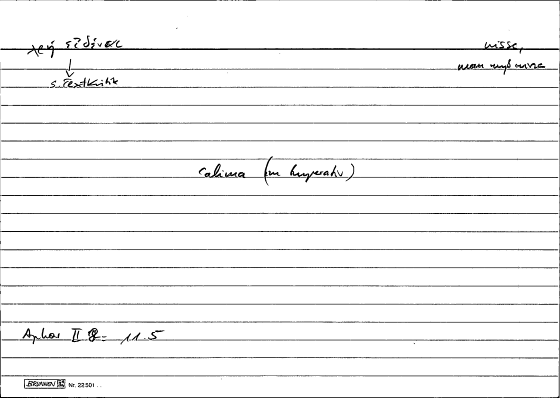 χρὴ εἰδέναι
wisse,
man muß wissen
s. Textkritik
calima (im Imperativ)
Aphor II 11.5
BRUNNEN Nr. 22501